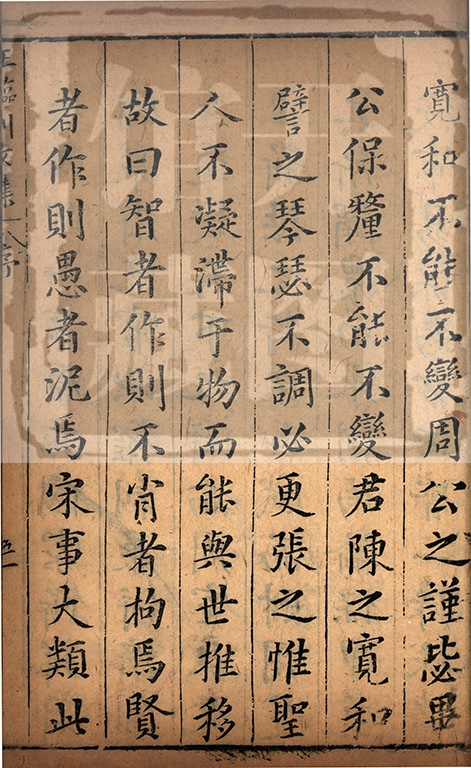 寬和不能不變周公之謹毖畢
公保釐不能不變君陳之寬和
譬之琴瑟不調必更張之惟聖
人不凝滯于物而能與世推移
故曰智者作則不肖者拘焉賢
者作則愚者泥焉宋事大類此
王臨川文集 序 五